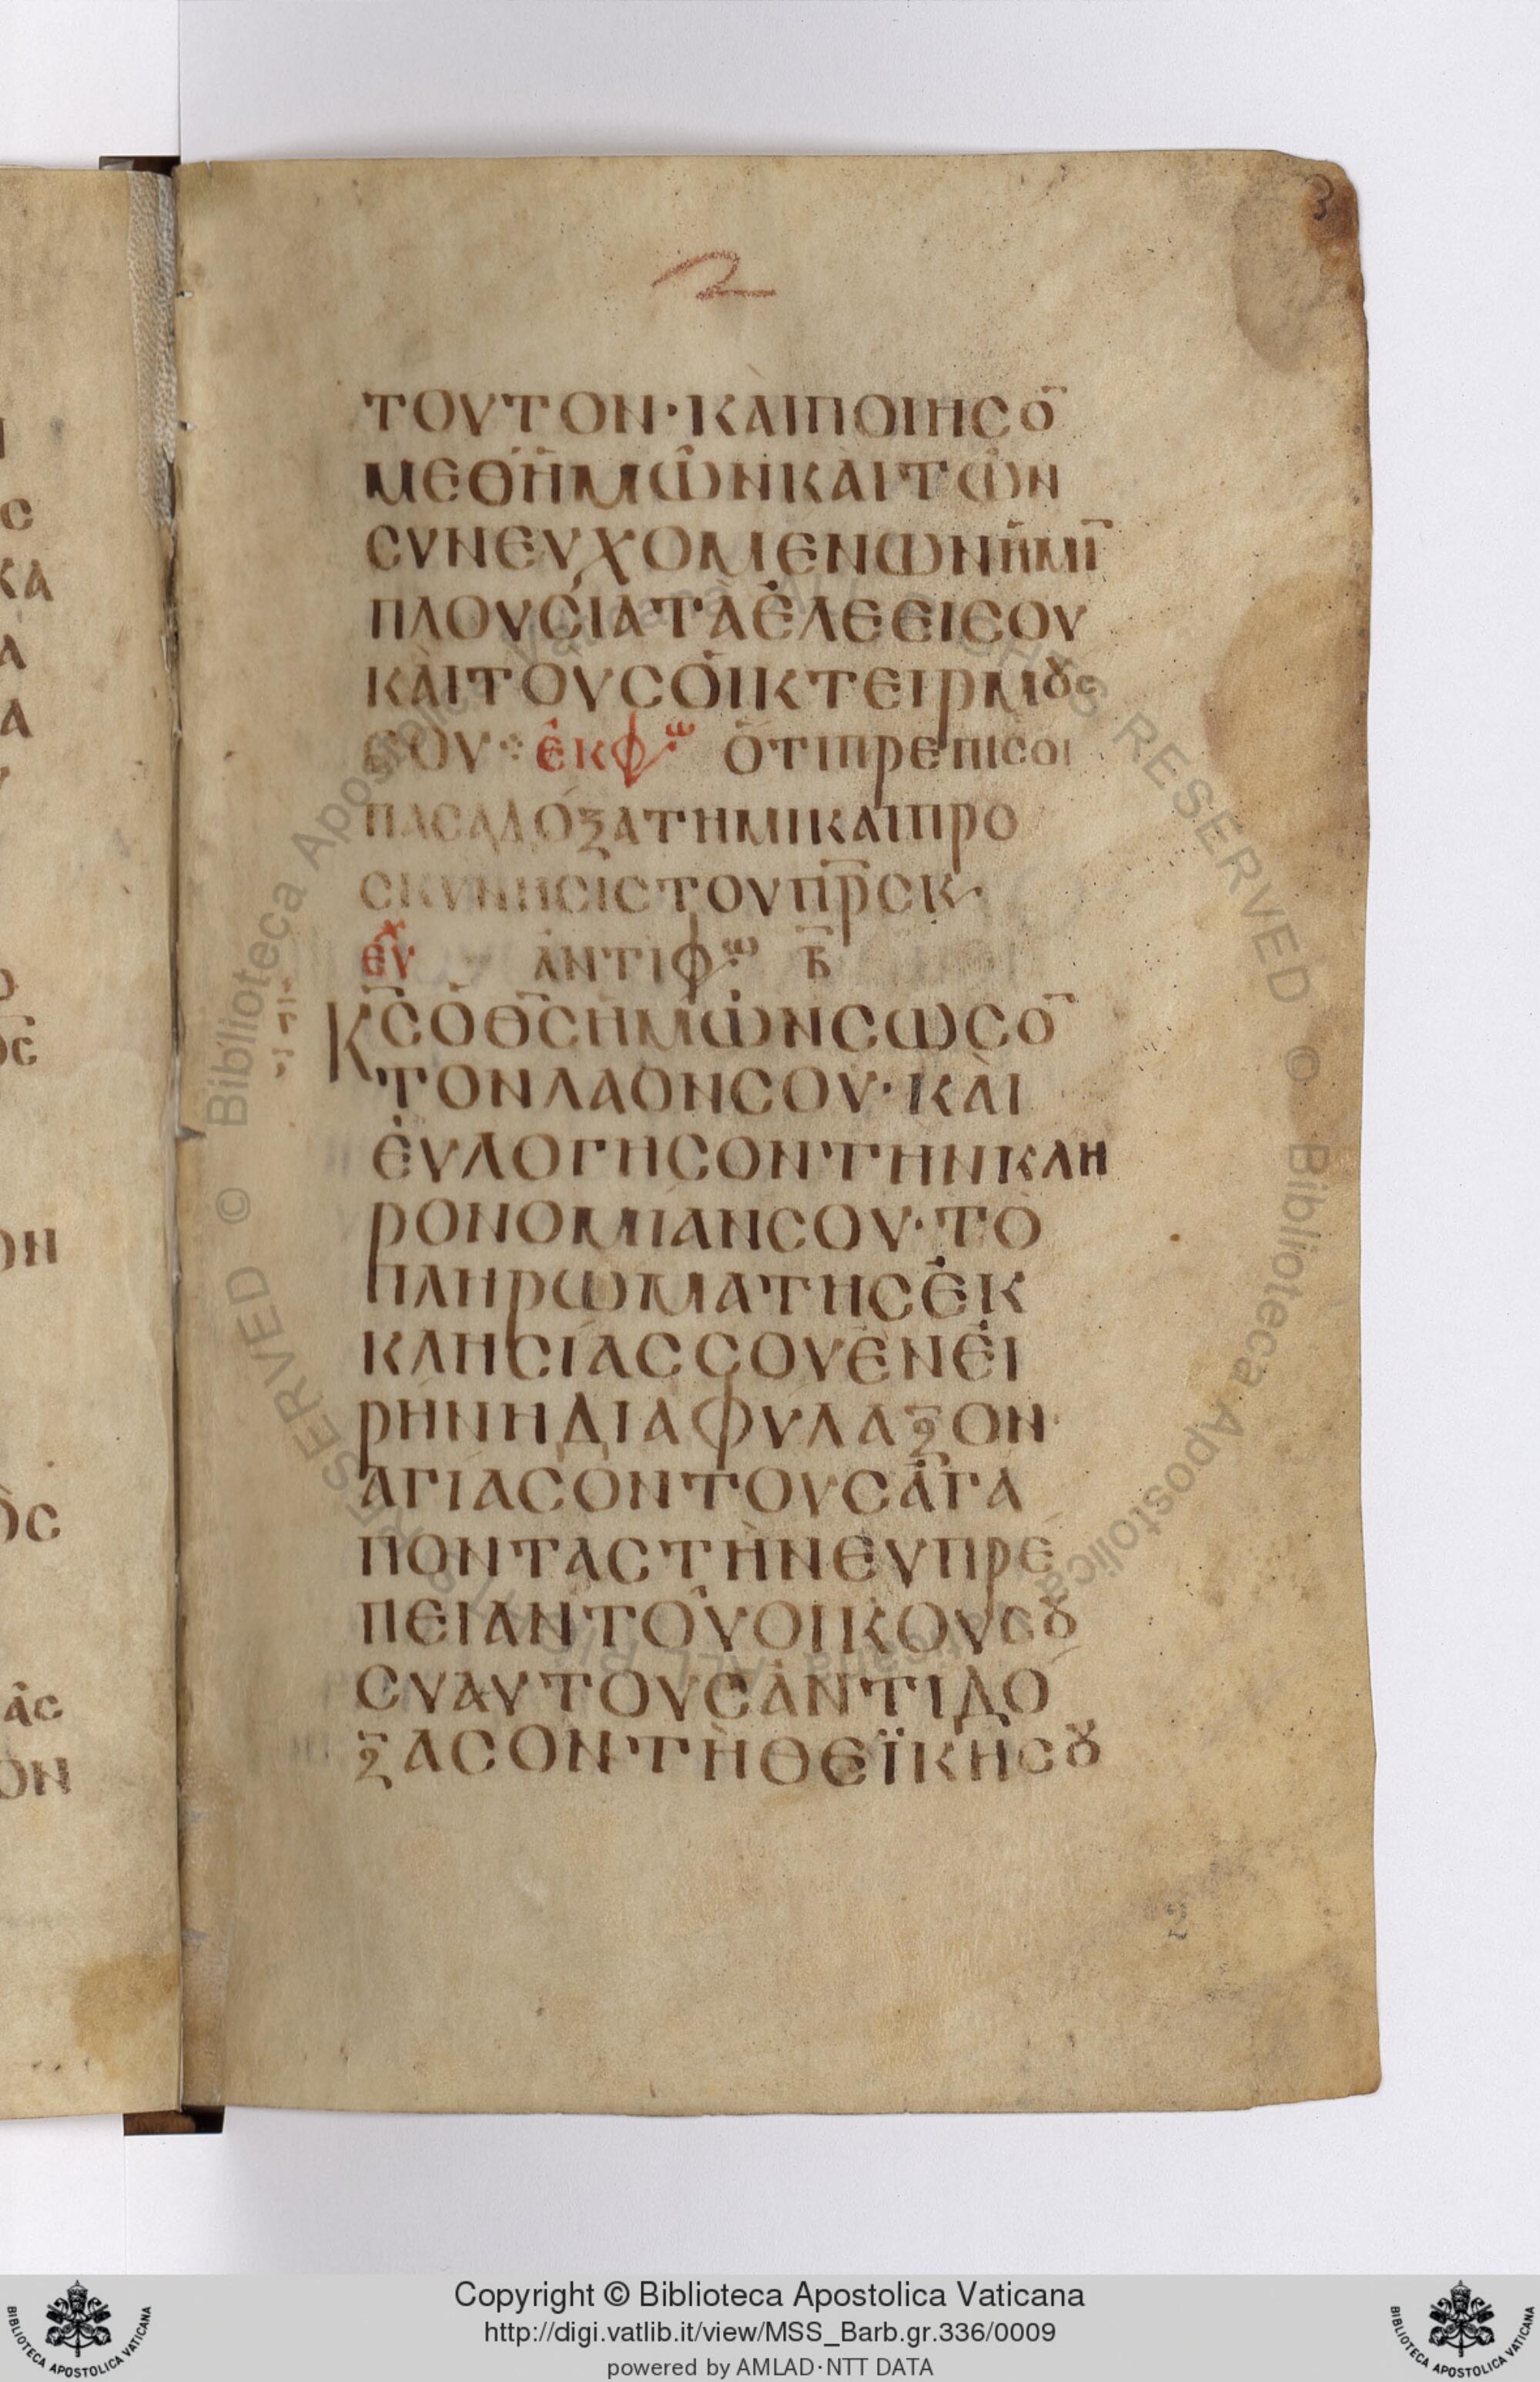 3
2
ΤΟΥΤΟΝ· ΚΑΙ ΠΟΙΗСΟ̅
ΜΕΘ ΗΜΩΝ ΚΑΙ ΤΩΝ
СΥΝΕΥΧΟΜΕΝΩΝ ΗΜΙ̅
ΠΛΟΥСΙΑ ΤΑ ΕΛΕΕΙ СΟΥ
ΚΑΙ ΤΟΥС ΟΙΚΤΕΙΡΜȣС
СΟΥ ⁘ ΕΚΦω ΟΤΙ ΠΡΕΠΙ СΟΙ
ΠΑСΑ ΔΟΞΑ ΤΗΜΙ ΚΑΙ ΠΡΟ
СΚΥΝΗСΙС ΤΟΥ Π̅Ρ̅С Κ·
ΕΥΧ ΑΝΤΙΦω Β̅
Κ̅С̅ Ο Θ̅С̅ ΗΜΩΝ СΩСΟ̅
ΤΟΝ ΛΑΟΝ СΟΥ· ΚΑΙ
ΕΥΛΟΓΗСΟΝ ΤΗΝ ΚΛΗ
ΡΟΝΟΜΙΑΝ СΟΥ· ΤΟ
ΠΛΗΡΩΜΑ ΤΗС ΕΚ
ΚΛΗСΙΑС СΟΥ ΕΝ ΕΙ
ΡΗΝΗ ΔΙΑΦΥΛΑΞΟΝ·
ΑΓΙΑСΟΝ ΤΟΥС ΑΓΑ
ΠΟΝΤΑС ΤΗΝ ΕΥΠΡΕ
ΠΕΙΑΝ ΤΟΥ ΟΙΚΟΥ Сȣ
СΥ ΑΥΤΟΥС ΑΝΤΙΔΟ
ΞΑСΟΝ ΤΗ ΘΕΪΚΗ Сȣ
Copyright © Biblioteca Apostolica Vaticana
http://digi.vatlib.it/view/MSS_Barb.gr.336/0009
powered by AMLAD·NTT DATA
BIBLIOTECA APOSTOLICA VATICANA
BIBLIOTECA APOSTOLICA VATICANA